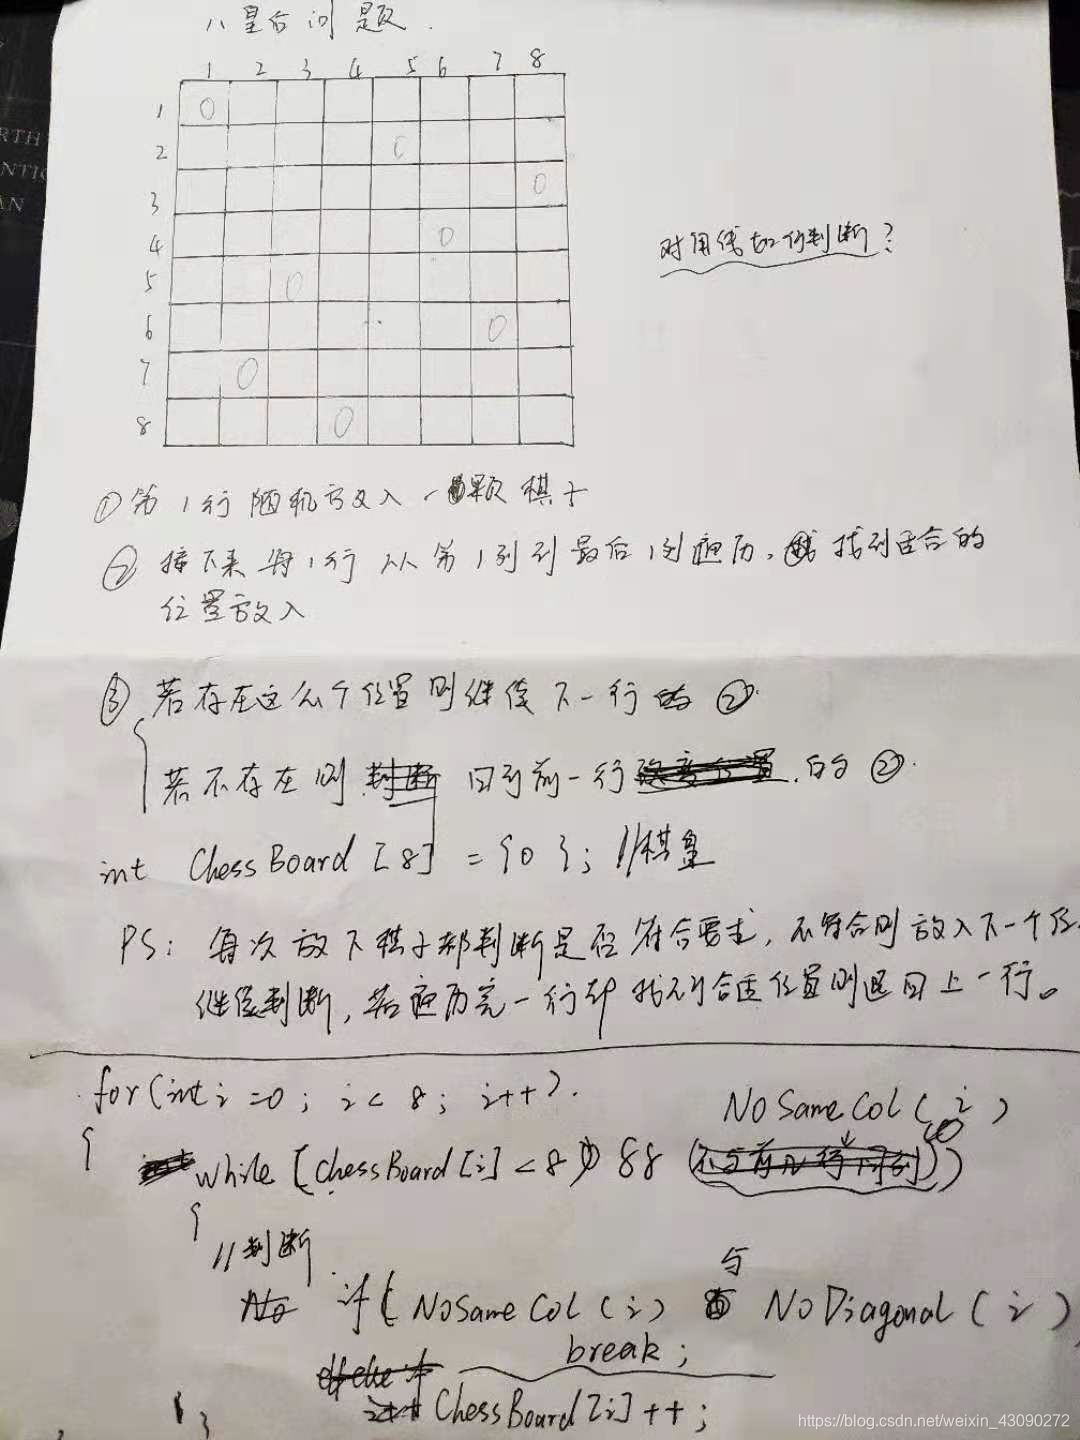 八皇后问题.
1 2 3 4 5 6 7 8
1
2
3
4
5
6
7
8
对角线如何判断?
①第1行随机放入一颗棋子
② 接下来每1行从第1列到最后1列遍历,找到适合的
位置放入
③ 若存在这么个位置则继续下一行的②.
若不存在则 回到前一行 的②.
int ChessBoard[8] = {0}; //棋盘
PS: 每次放下棋子都判断是否符合要求, 不符合则放入下一个
继续判断, 若遍历完一行都找不到合适位置则退回上一行。
for(int i=0; i<8; i++).
NoSameCol(i)
{
while (ChessBoard[i]<8) &&
{
//判断
与
if( NoSameCol(i) NoDiagonal(i)
break;
ChessBoard[i]++;
}
https://blog.csdn.net/weixin_43090272
RTH
NTIC
AN